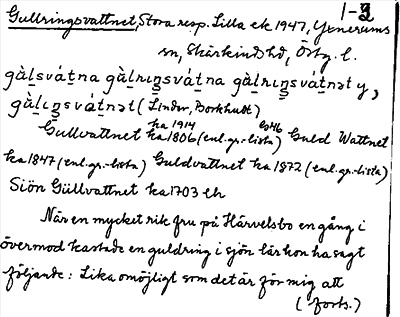 1-3
Gullringsvattnet, Stora resp. Lilla ek 1947, Yxnerums
sn, Skärkinds hd, Östg. l.
gàḷsváṭna gàḷrıṇsváṭna gàlrıṇsváṭnət y,
gàḷıṇsváṭnət (Linder, Borkhult)
ka 1914 GS46
Gullvattnet ka 1806 (enl. gr.-lista) Guld Wattnet
ka 1847 (enl. gr.-lista) Guldvattnet ka 1872 (enl. gr.-lista)
Siön Güllvattnet ka 1703 eh
När en mycket rik fru på Härvelsbo en gång i
övermod kastade en guldring i sjön lär hon ha sagt
följande: Lika omöjligt som det är för mig att
(forts.)